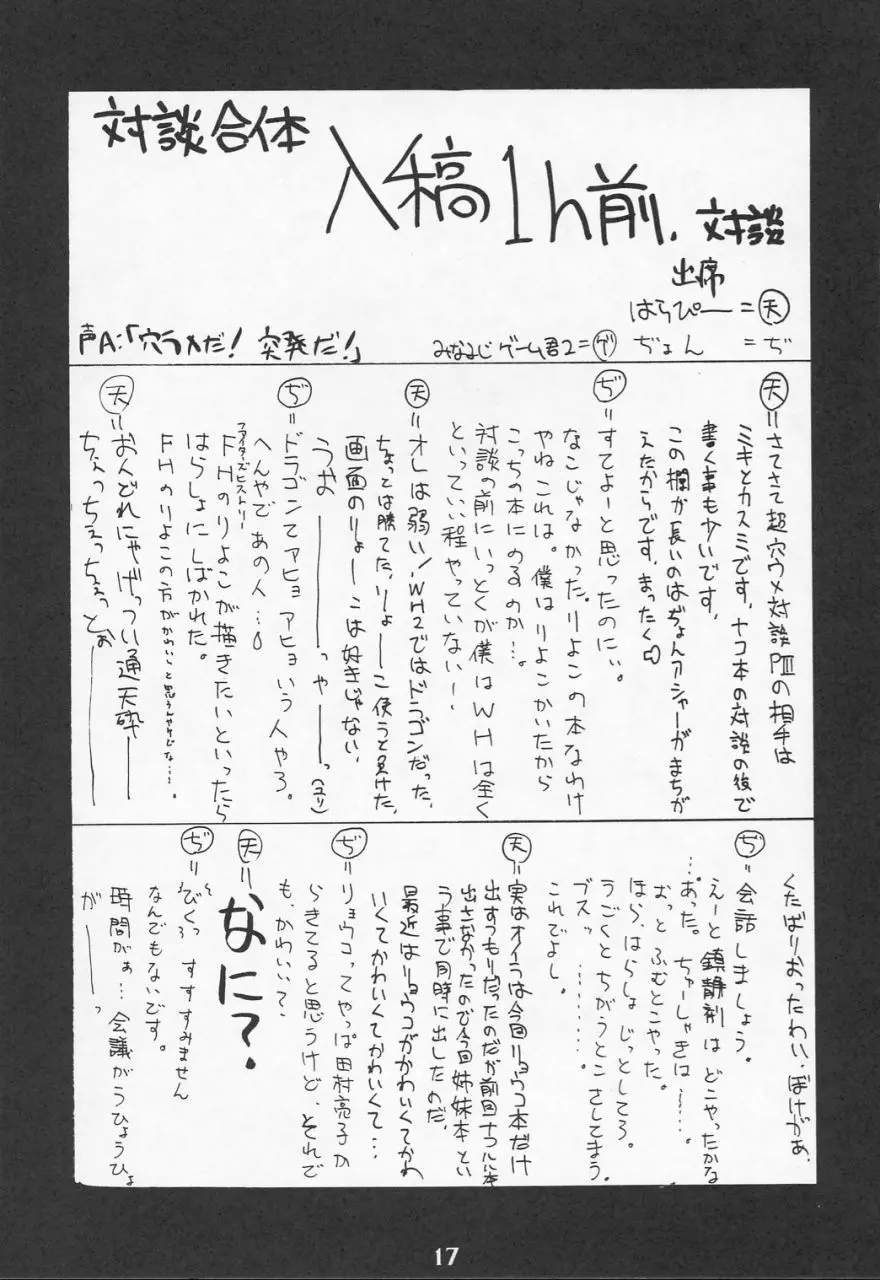 対談合体
入稿1h前.対談
出席
はらぴー=天
声A:「穴ウメだ! 突発だ!」
みなみじゲーム君2=ゲ ぢょん =ぢ
天=さてさて超穴ウメ対談PⅢの相手は
ミキとカスミです、ナコ本の対談の後で
書く事も少いです、
この欄が長いのはぢょんアシャーがまちが
えたからです、まったく
ぢ=すてよーと思ったのにぃ。
なこじゃなかった。りよこの本なわけ
やねこれは。僕はりよこかいたから
こっちの本にのるのか…。
対談の前にいっとくが僕はWHは全く
といっていい程やっていないー!
天=オレは弱い!、WH2ではドラゴンだった、
ちょっとは勝てた、りょーこ使うと負けた、
画面のりょーこは好きじゃない、
うおーーーっやーーっ(ユリ)
ぢ=ドラゴンてアヒョアヒョいう人やろ。
へんやであの人…。
ファイターズヒストリー
FHのりよこが描きたいといったら
はらしょにしばかれた。
FHのりよこの方がかわいいと思うんやけどな…。
天=おんどれにゃげっつい通天砕ーー
ちぇっちぇっちぇっとぉーーー
くたばりおったわい・ぼけがぁ、
ぢ=会話しましょう。
えーと鎮静剤はどこやったかな
…あった。ちゅーしゃきは……。
おっとふむとこやった。
ほら、はらしょじっとしてろ。
うごくとちがうとこさしてまう。
ブスッ………。
これでよし。
天=実はオイラは今回リョウコ本だけ
出すつもりだったのだが前回ナコルル本
出さなかったので今回姉妹本とい
う事で同時に出したのだ、
最近はリョウコがかわいくてかわ
いくてかわいくてかわいくて…
ぢ=リョウコってやっぱ田村亮子か
らきてると思うけど、それで
も、かわいい?
天=なに?
ぢ=びくっ すすすみません
なんでもないです。
時間がぁ…会議がうひょうひょ
がーーっ
17